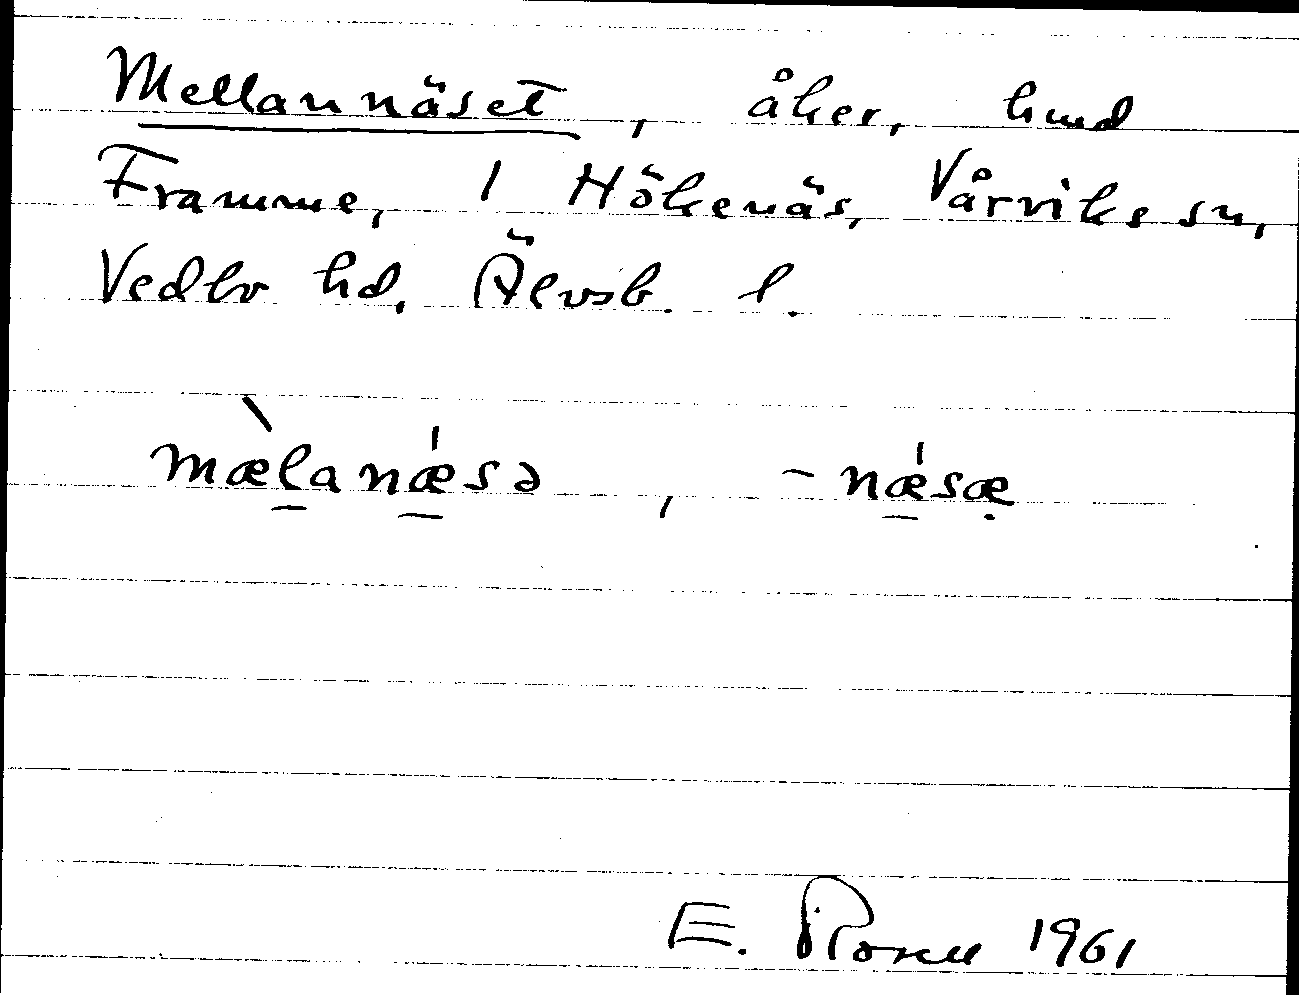 Mellannäset, åker, hmd
Framme, 1 Hökenäs, Vårviks sn,
Vedbo hd, Älvsb. l.
mæ̀l̠anǽ̠sə, -nǽ̠sæ̣
E. 1961